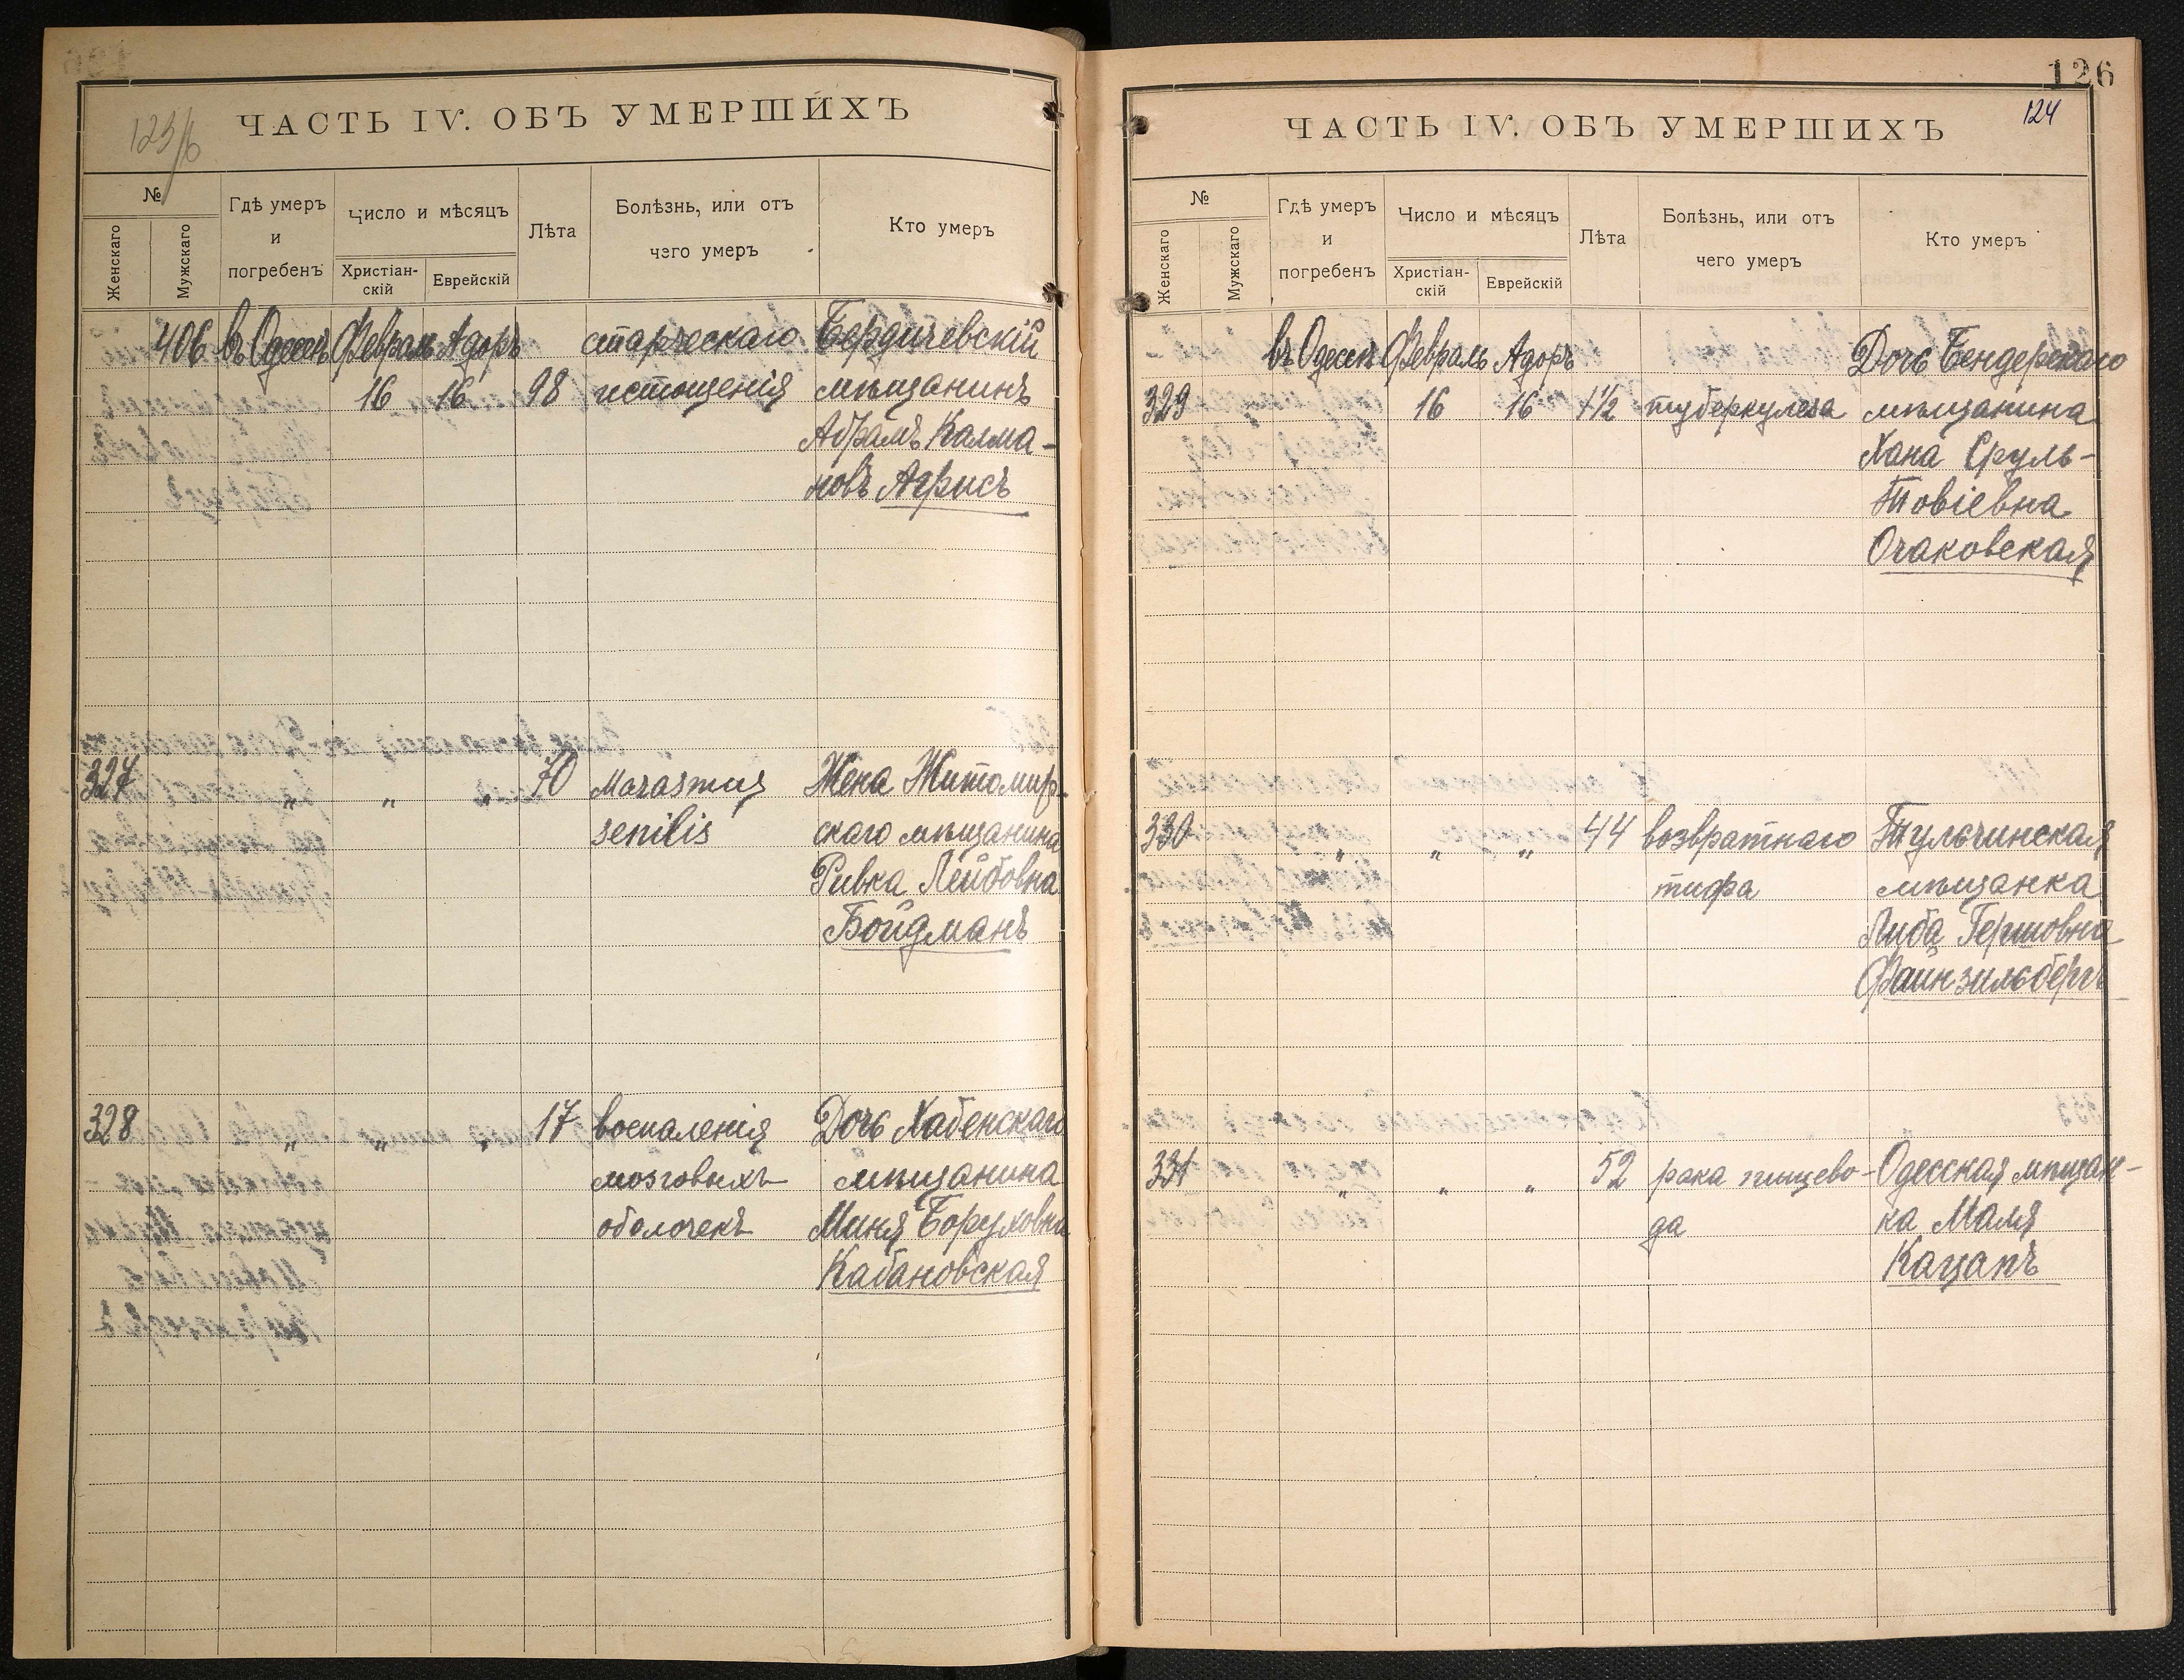 123/б
ЧАСТЬ IV. ОБЪ УМЕРШИХЪ
№
Женскаго
Мужскаго
Гдѣ умеръ
и
погребенъ
Число и мѣсяцъ
Христіан-
скій
Еврейскій
Лѣта
Болѣзнь, или отъ
чего умеръ
Кто умеръ
406 въ Одессѣ Февраль Адоръ старческаго Бердичевскій
16 16 98 истощенія мѣщанинъ
Абрамъ Калма-
новъ Агрисъ
327 „ „ „ 70 Marasmus Жена Житомир-
senilis скаго мѣщанина
Ривка Лейбовна
Бойдманъ
328 „ „ „ 17 воспаленія Дочь Хабенскаго
мозговыхъ мѣщанина
оболочекъ Миня Боруховна
Кабановская
126
124
ЧАСТЬ IV. ОБЪ УМЕРШИХЪ
№
Женскаго
Мужскаго
Гдѣ умеръ
и
погребенъ
Число и мѣсяцъ
Христіан-
скій
Еврейскій
Лѣта
Болѣзнь, или отъ
чего умеръ
Кто умеръ
въ Одессѣ Февраль Адоръ Дочь Бендерскаго
329 16 16 1 1/2 туберкулеза мѣщанина
Хана Сруль-
Товіевна
Очаковская
330 „ „ „ 44 возвратнаго Тульчинская
тифа мѣщанка
Либа Гершовна
Файнзильбергъ
331 „ „ „ 52 рака пищево- Одесская мѣщан-
да ка Маля
Кацапъ